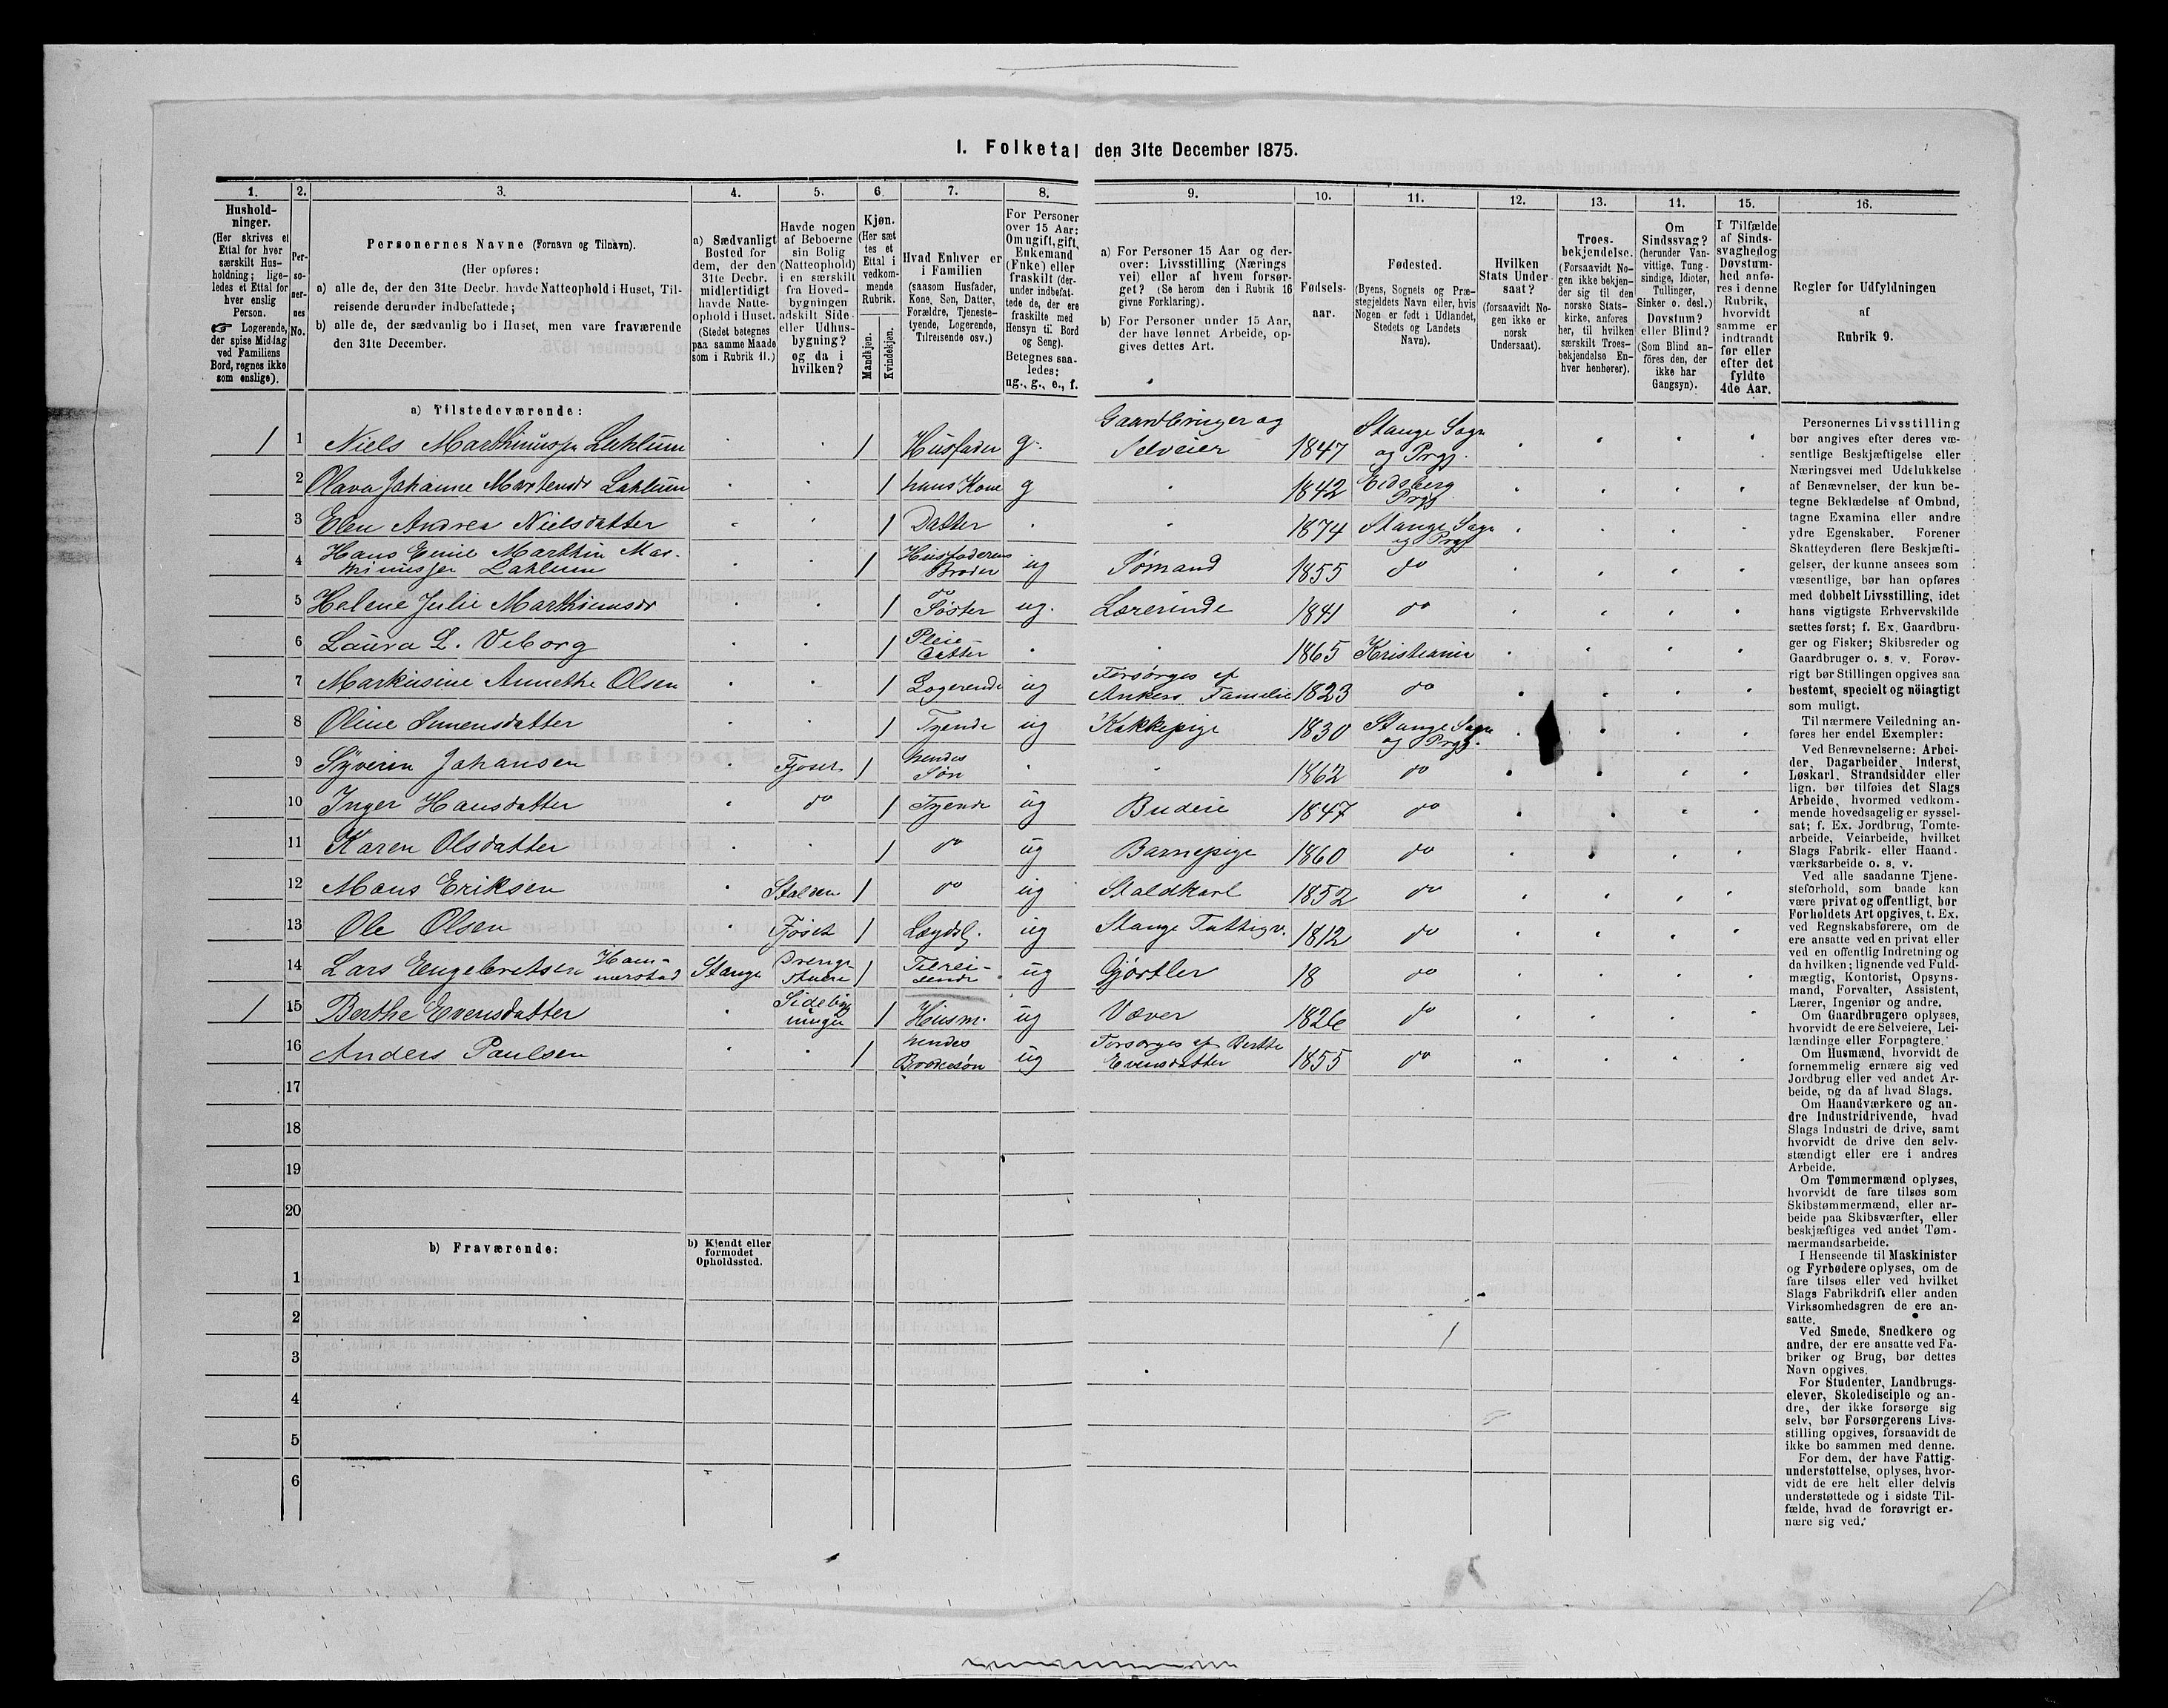 I. Folketal den 31te December 1875.
1. 2. 3. 4. 5. 6. 7. 8. 9. 10. 11. 12. 13. 14. 15. 16.
Hushold-
ninger.
(Her skrives et
Ettal for hver
særskilt Hus-
holdning; lige-
ledes et Ettal for
hver enslig
Person.
☞ Logerende,
der spise Middag
ved Familiens
Bord, regnes ikke
som enslige).
Per-
so-
ner-
nes
No.
Personernes Navne (Fornavn og Tilnavn).
(Her opføres:
a) alle de, der den 31te Decbr. havde Natteophold i Huset, Til-
reisende derunder indbefattede;
b) alle de, der sædvanlig bo i Huset, men vare fraværende
den 31te December.
a) Sædvanligt
Bosted for
dem, der den
31te Decbr.
midlertidigt
havde Natte-
ophold i Huset.
(Stedet betegnes
paa samme Maade
som i Rubrik 11.)
Havde nogen
af Beboerne
sin Bolig
(Natteophold)
i en særskilt
fra Hoved-
bygningen
adskilt Side-
eller Udhus-
bygning?
og da i
hvilken?
Kjøn.
(Her sæt
tes et
Ettal i
vedkom-
mende
Rubrik.
Mandkjøn.
Kvindekjøn.
Hvad Enhver er
i Familien
(saasom Husfader,
Kone, Søn, Datter,
Forældre, Tjeneste-
tyende, Logerende,
Tilreisende osv.)
For Personer
over 15 Aar:
Om ugift, gift,
Enkemand
(Enke) eller
fraskilt (der-
under indbefat-
tede de, der ere
fraskilte med
Hensyn til Bord
og Seng).
Betegnes saa-
ledes:
ug., g., e., f.
a) For Personer 15 Aar og der-
over: Livsstilling (Nærings
vei) eller af hvem forsør-
get? (Se herom den i Rubrik 16
givne Forklaring).
b) For Personer under 15 Aar,
der have lønnet Arbeide, op-
gives dettes Art.
Fødsels-
aar.
Fødested.
(Byens, Sognets og Præ-
stegjeldets Navn eller, hvis
Nogen er født i Udlandet,
Stedets og Landets
Navn).
Hvilken
Stats Under
saat?
(forsaavidt No-
gen ikke er
norsk
Undersaat).
Troes-
bekjendelse.
(Forsaavidt No-
gen ikke bekjen-
der sig til den
norske Stats-
kirke, anføres
her, til hvilken
særskilt Troes-
bekjendelse En-
hver henhører).
Om
Sindssvag?
(herunder Van-
vittige, Tung-
sindige, Idioter,
Tullinger,
Sinker o. desl.)
Døvstum?
eller Blind?
(Som Blind an-
föres den, der
ikke har
Gangsyn).
I Tilfælde
af Sinds-
svaghed og
Døvstum-
hed anfø-
res i denne
Rubrik,
hvorvidt
samme er
indtraadt
før eller
efter det
fyldte
4de Aar.
Regler for Udfyldningen
af
Rubrik 9.
a) Tilstedeværende:
1 1 Niels Marthinussen Lahlum 1 Husfader g. Gaardbruger og Selveier 1847 Stange Sogn og Prgj.
2 Olava Johanne Martensdr Lahlum 1 hans Kone g 1842 Eidsberg Prgj
3 Elen Andrea Nielsdatter 1 Datter 1874 Stange Sogn og Prgj
4 Hans Emil Marthin Mar-
thinussen Lahlum 1 Husfaderens Broder ug Sømand 1855 do
5 Helene Julie Marthinusdr 1 do Søster ug. Lærerinde 1841 do
6 Laura L. Viborg 1 Pleie-datter 1865 Kristiania
7 Markusine Annethe Olsen 1 Logerende ug Forsørges af Ankers Familie 1823 do
8 Oline Simensdatter 1 Tyende ug Kokkepige 1830 Stange Sogn og Prgj.
9 Syverin Johansen Fjøset 1 hendes Søn 1862 do
10 Inger Hansdatter do 1 Tyende ug Budeie 1847 do
11 Karen Olsdatter 1 do ug Barnepige 1860 do
12 Mons Eriksen Stalden 1 do ug Staldkarl 1852 do
13 Ole Olsen Fjøset 1 Lægdsl. ug Stange Fattigv. 1812 do
14 Lars Engebretsen Ham-
merstad Stange Drenge-stuen 1 Tilrei-sende ug Gjørtler 18 do
1 15 Berthe Evensdatter Sideby-ningen 1 Husm. ug Væver 1826 do
16 Anders Paulsen 1 hendes Brodersøn ug Forsørges af Berthe Evensdatter 1855 do
17
18
19
20
b) Fraværende:
b) Kjendt eller
formodet
Opholdssted.
1
2
3
4
5
6
Personernes Livsstilling
bør angives efter deres væ-
sentlige Beskjæftigelse eller
Næringsvei med Udelukkelse
af Benævnelser, der kun be-
tegne Beklædelse af Ombud,
tagne Examina eller andre
ydre Egenskaber. Forener
Skatteyderen flere Beskjæfti-
gelser, der kunne ansees som
væsentlige, bør han opføres
med dobbelt Livsstilling, idet
hans vigtigste Erhvervskilde
sættes først; f. Ex. Gaardbru-
ger og Fisker; Skibsreder og
Gaardbruger o. s. v. Forøv-
rigt bør Stillingen opgives saa
bestemt, specielt og nöiagtigt
som muligt.
Til nærmere Veiledning an-
føres her endel Exempler:
Ved Benævnelserne: Arbei-
der, Dagarbeider, Inderst,
Løskarl, Strandsidder eller
lign. bør tilføies det Slags
Arbeide, hvormed vedkom-
mende hovedsagelig er syssel-
sat; f. Ex. Jordbrug, Tomte-
arbeide, Veiarbeide, hvilket
Slags Fabrik- eller Haand-
værksarbeide o. s. v.
Ved alle saadanne Tjene-
steforhold, som baade kan
være privat og offentligt, bør
Forholdets Art opgives, t. Ex.
ved Regnskabsførere, om de
ere ansatte ved en privat eller
ved en offentlig Indretning og
da hvilken; lignende ved Fuld-
mægtig, Kontorist, Opsyns-
mand, Forvalter, Assistent,
Lærer, Ingeniør og andre.
Om Gaardbrugere oplyses,
hvorvidt de ere Selveiere, Lei-
lændinge eller Forpagtere.
Om Husmænd, hvorvidt de
fornemmelig ernære sig ved
Jordbrug eller ved andet Ar-
beide, og da af hvad Slags.
Om Haandværkere og an-
dre Industridrivende, hvad
Slags Industri de drive, samt
hvorvidt de drive den selv-
stændigt eller ere i andres
Arbeide.
Om Tømmermænd oplyses,
hvorvidt de fare tilsøs som
Skibstømmermænd, eller ar-
beide paa Skibsværfter, eller
beskjæftiges ved andet Tøm-
mermandsarbeide.
I Henseende til Maskinister
og Fyrbødere oplyses, om de
fare tilsøs eller ved hvilket
Slags Fabrikdrift eller anden
Virksomhedsgren de ere an-
satte.
Ved Smede, Snedkere og
andre, der ere ansatte ved Fa-
briker og Brug, bør dettes
Navn opgives.
For Studenter, Landbrugs-
elever, Skoledisciple og an-
dre, der ikke forsørge sig
selv, bør Forsørgerens Livs-
stilling opgives, forsaavidt de
ikke bo sammen med denne.
For dem, der have Fattig-
understøttelse, oplyses, hvor-
vidt de ere helt eller delvis
understøttede og i sidste Til-
fælde, hvad de forøvrigt er-
nære sig ved.